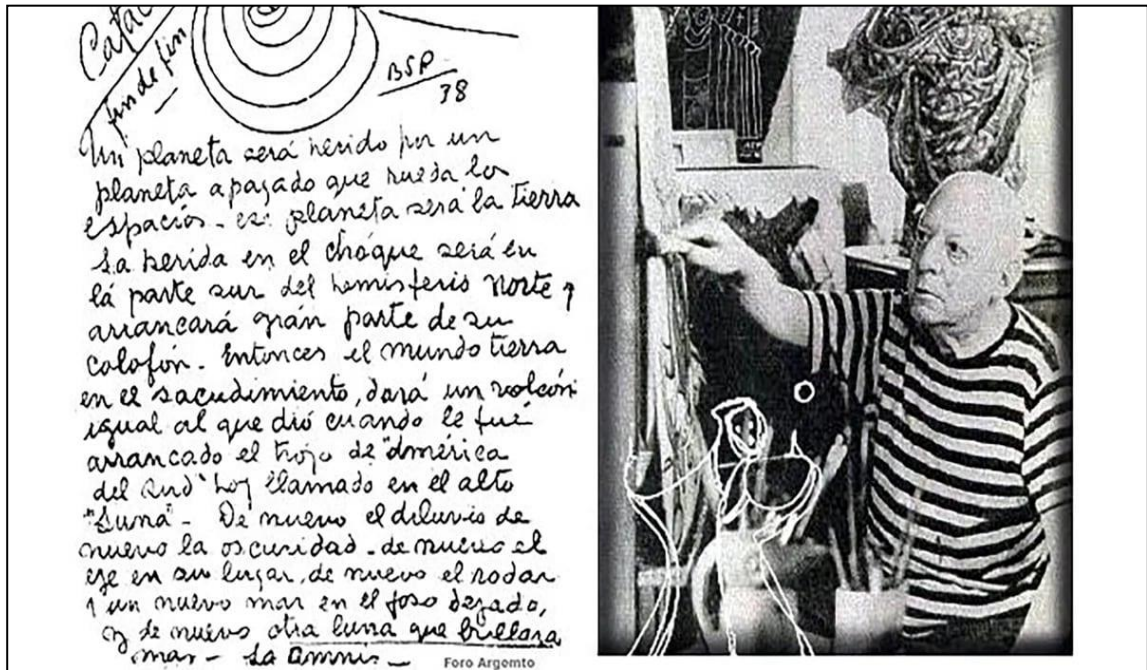 fin de fin
BSP
38
Un planeta será herido por un
planeta apagado que rueda los
espacios - ese planeta será la tierra
La herida en el choque será en
lá parte sur del hemisferio norte y
arrancará grán parte de su
colofón. Entonces el mundo tierra
en el sacudimiento, dará un volcón
igual al que dió cuando le fué
arrancado el trozo de "América
del Sud" hoy llamado en el alto
"Luna" - De nuevo el diluvio de
nuevo la oscuridad - de nuevo el
eje en su lugar, de nuevo el rodar
y un nuevo mar en el foso dejado,
y de nuevo otra luna que brillara
mas - La
Foro Argemto